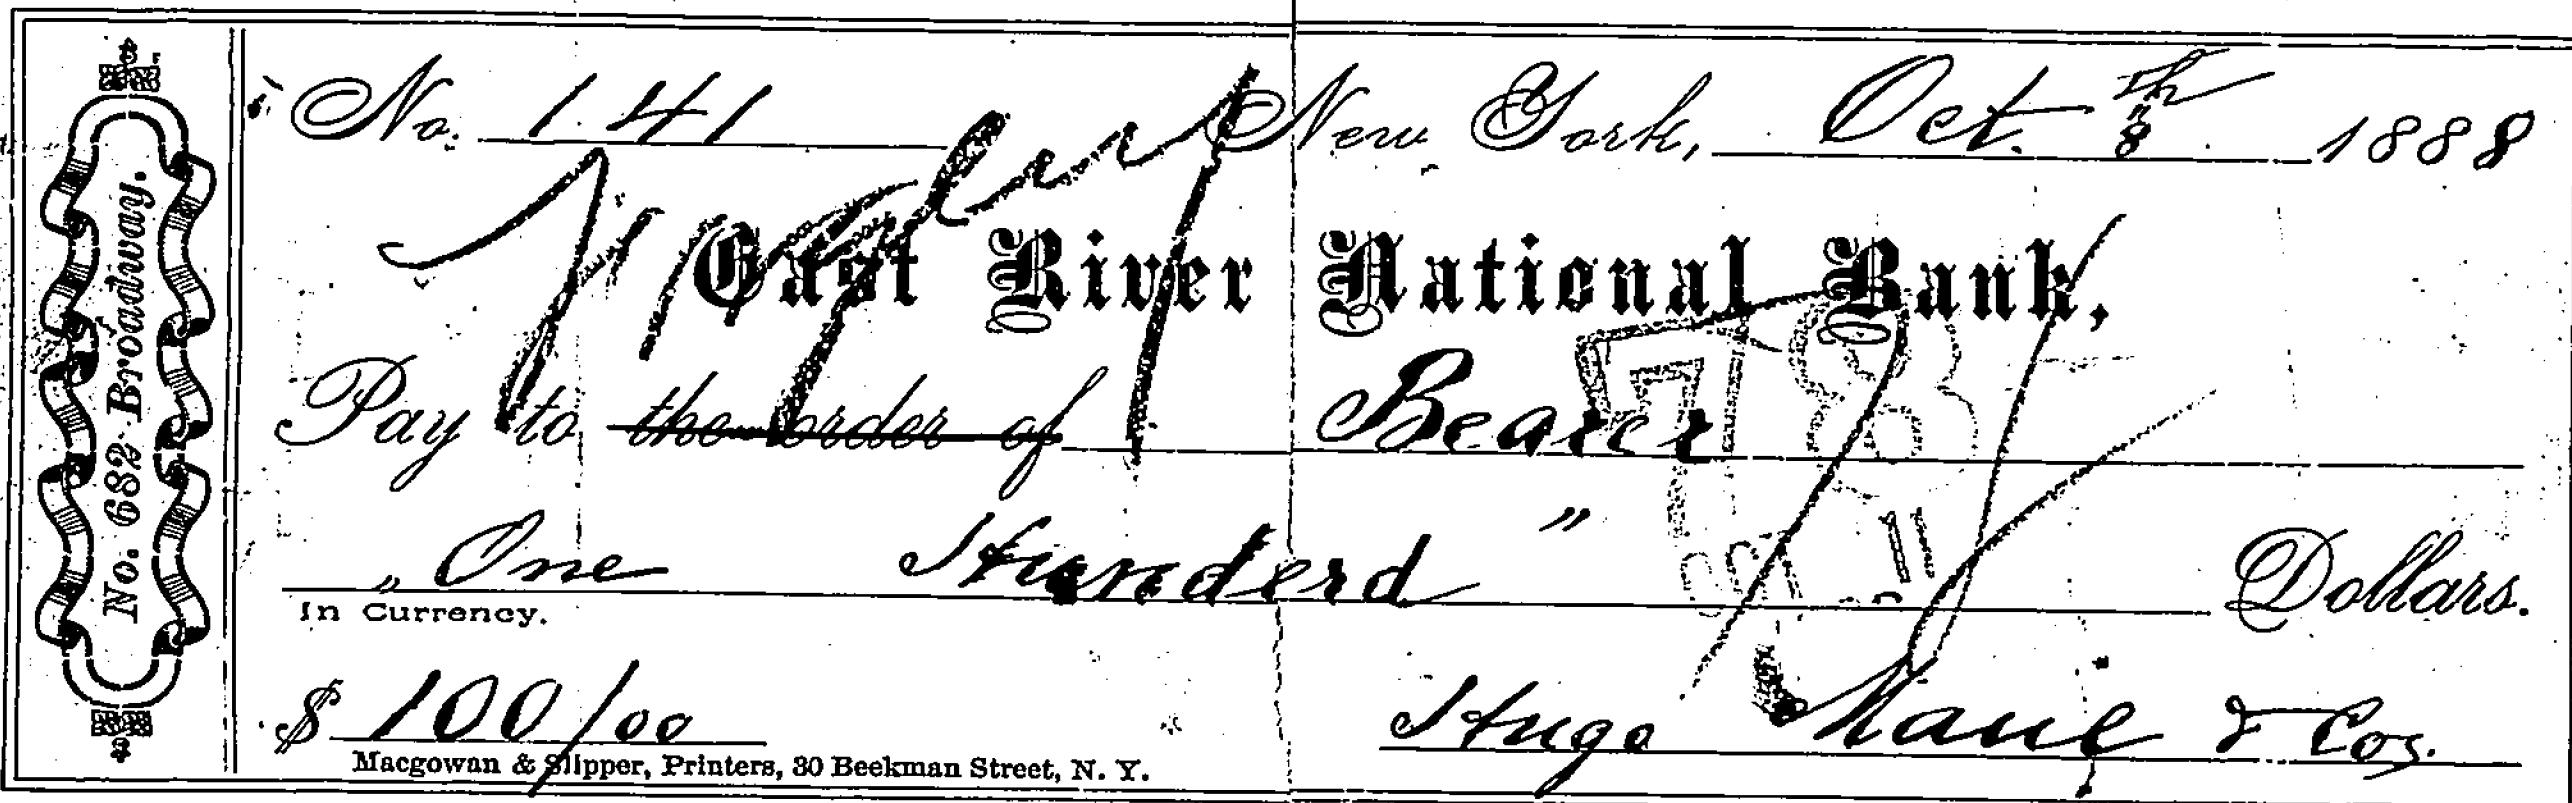 No. 682 Broadway.
No. 141 New York, Oct. 8th 1888
East River National Bank,
Pay to the order of Bearer
„ One Hunderd "
Dollars.
In Currency.
$ 100/00 Hugo & Cos.
Macgowan & Slipper, Printers, 30 Beekman Street, N. Y.